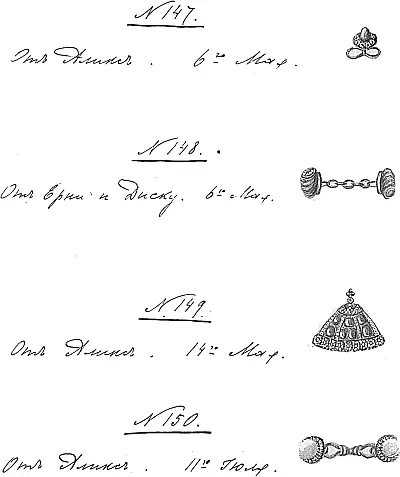 N 147.
Отъ Аликсъ. 6го Мая.
N 148.
Отъ Ерни и Диску. 6го Мая.
N 149.
Отъ Аликсъ. 14го Мая.
N 150.
Отъ Аликсъ. 11го Іюля.